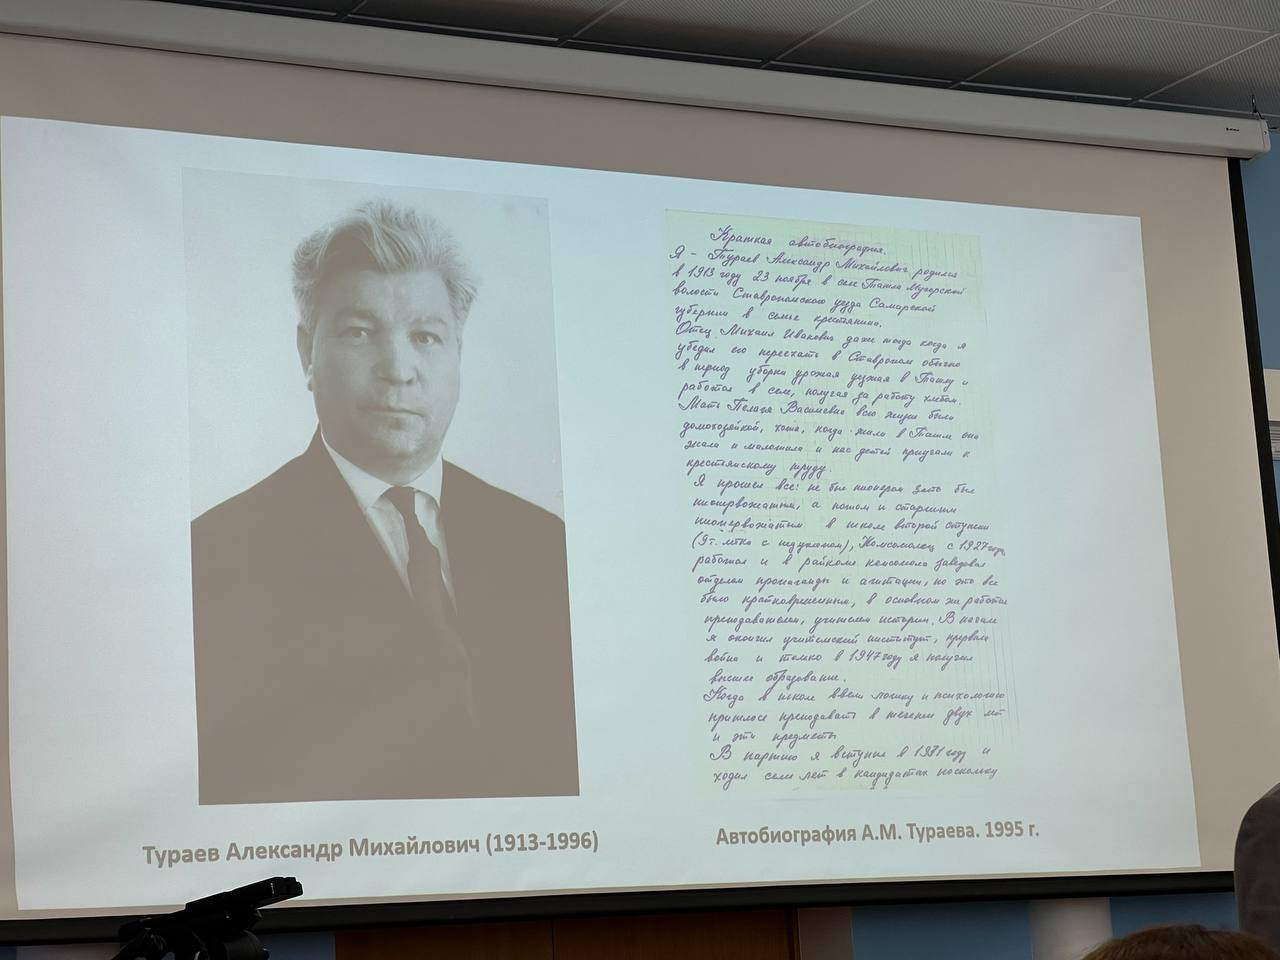 Краткая автобиография.
Я - Тураев Александр Михайлович родился
в 1913 году 23 ноября в селе Ташла Мусорской
волости Ставропольского уезда Самарской
губернии в семье крестьянина.
Отец Михаил Иванович даже тогда когда я
убедил его переехать в Ставрополь обычно
в период уборки урожая уезжал в Ташлу и
работал в селе, получая за работу хлебом.
Мать Пелагея Васильевна всю жизнь была
домохозяйкой, хотя, когда жили в Ташле она
жала и молотила и нас детей приучали к
крестьянскому труду.
Я прошел все: не был пионером зато был
пионервожатым, а потом и старшим
пионервожатым в школе второй ступени
(9т. летка с педуклоном), Комсомолец с 1927 года,
работал и в райкоме комсомола заведовал
отделом пропаганды и агитации, но это все
было кратковременным, в основном же работал
преподавателем, учителем истории. В начале
я окончил учительский институт, прервала
война и только в 1947 году я получил
высшее образование.
Когда в школе ввели логику и психологию
пришлось преподавать в течении двух лет
и эти предметы
В партию я вступил в году и
ходил семь лет в кандидатах поскольку
Тураев Александр Михайлович (1913-1996)
Автобиография А.М. Тураева. 1995 г.